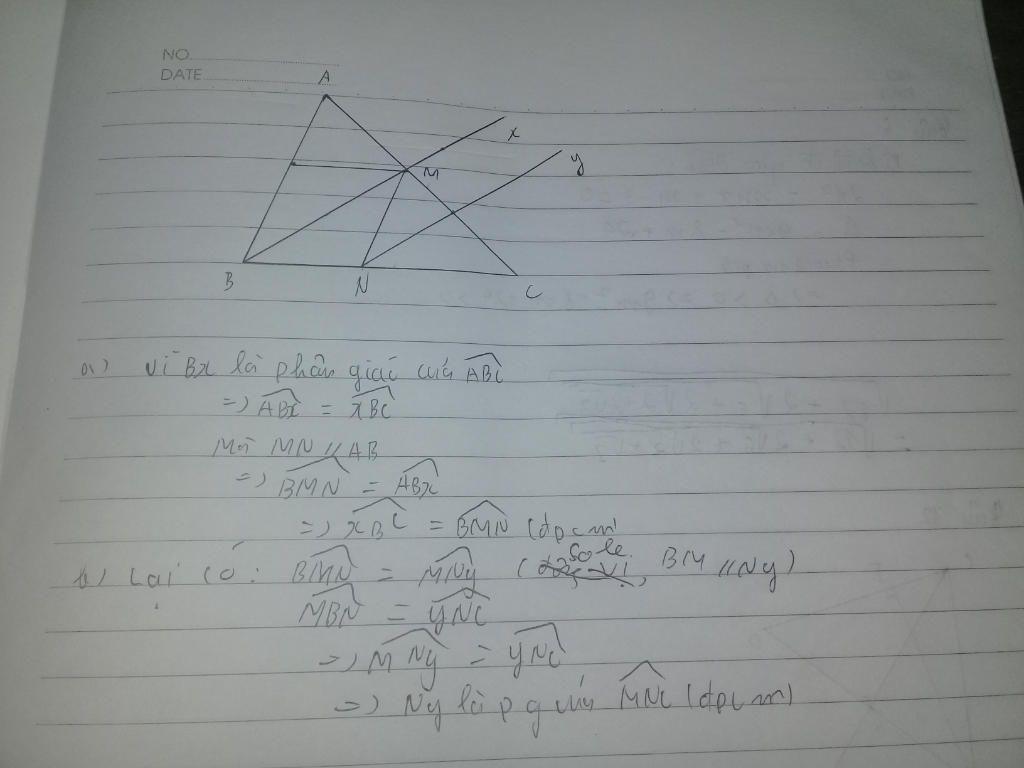 NO
DATE
A
x
y
M
B
N
C
a) Vì Bx là phân giác của ABC
=) ABx = xBC
Mà MN // AB
=) BMN = ABx
=) xBC = BMN (đpcm)
b) Lại có: BMN = MNy (so le, BM // Ny)
MBN = yNC
=) MNy = yNC
=) Ny là pg của MNC (đpcm)